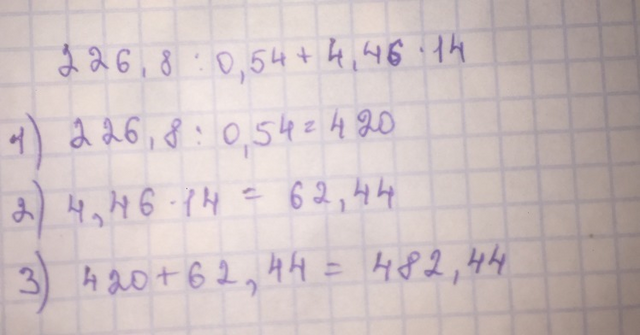 226,8 : 0,54 + 4,46 · 14
1) 226,8 : 0,54 = 420
2) 4,46 · 14 = 62,44
3) 420 + 62,44 = 482,44